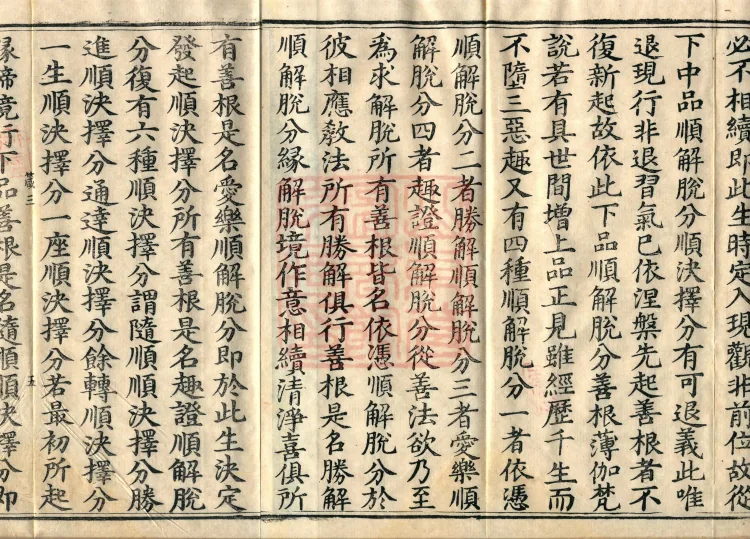 必不相續即此生時定入現觀非前位故從
下中品順解脫分順決擇分有可退義此唯
退現行非退習氣已依涅槃先起善根者不
復新起故依此下品順解脫分善根薄伽梵
說若有具世間增上品正見雖經歷千生而
不墮三惡趣又有四種順解脫分一者依憑
順解脫分二者勝解順解脫分三者愛樂順
解脫分四者趣證順解脫分從善法欲乃至
為求解脫所有善根皆名依憑順解脫分於
彼相應教法所有勝解俱行善根是名勝解
順解脫分緣解脫境作意相續清淨喜俱所
有善根是名愛樂順解脫分即於此生決定
發起順決擇分所有善根是名趣證順解脫
分復有六種順決擇分謂隨順順決擇分勝
進順決擇分通達順決擇分餘轉順決擇分
一生順決擇分一座順決擇分若最初所起
箴三 五
緣諦境行下品善根是名隨順順決擇分即